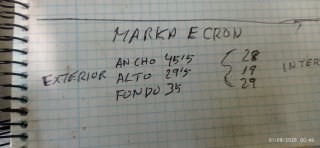 MARKA ECRON
ANCHO 45'5 { 28
EXTERIOR ALTO 29'5 { 19 INTER
FONDO 35 { 29
01/09/2026 00:49